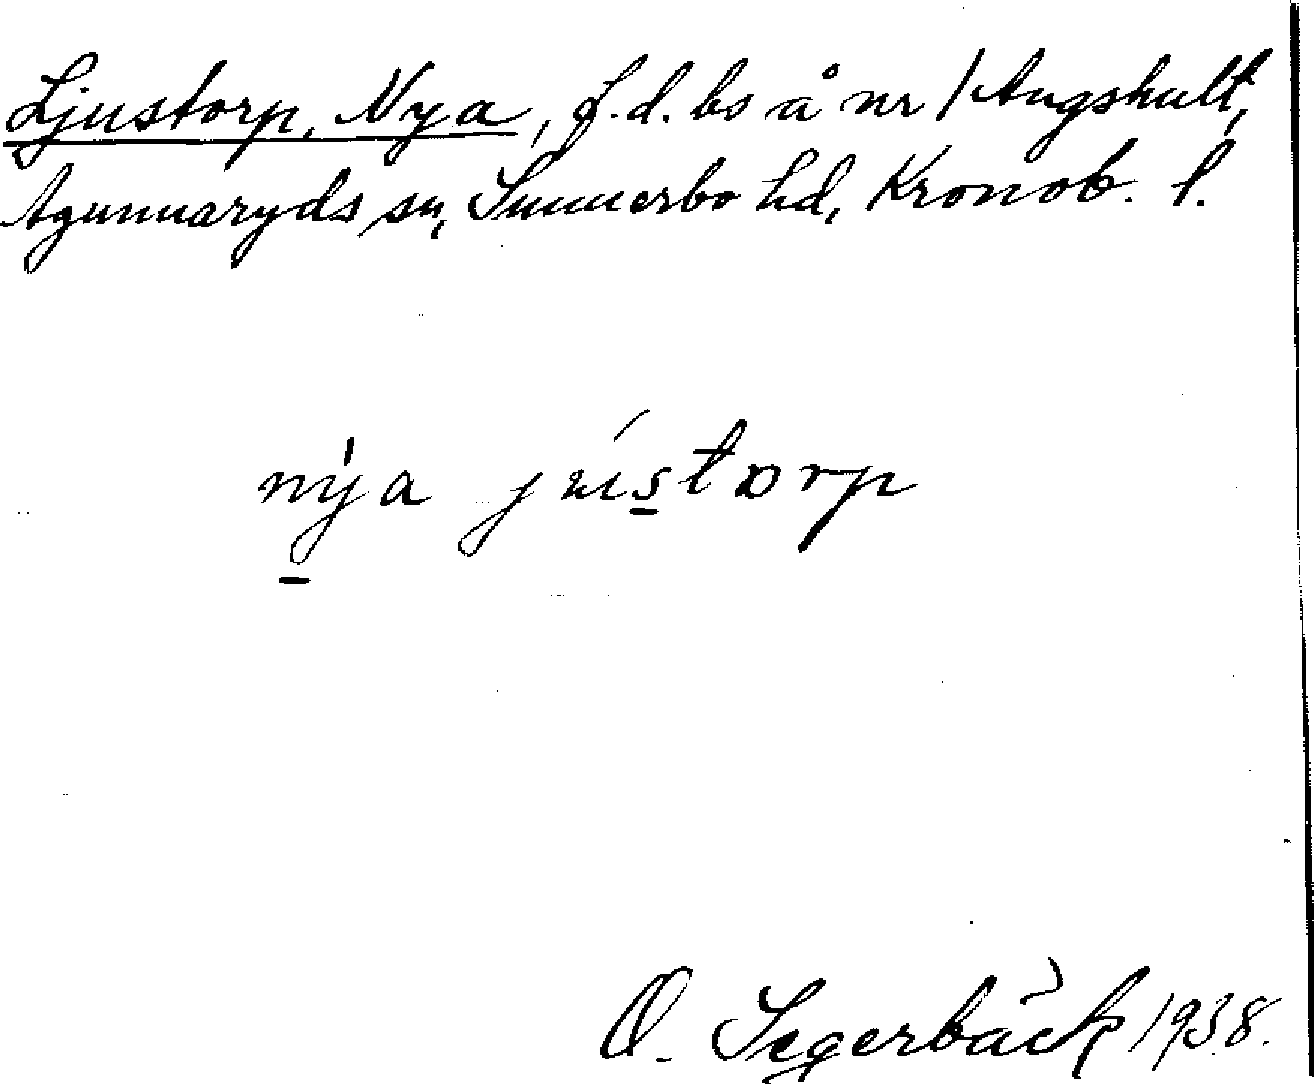 Ljustorp, Nya, f.d. bs å nr 1 Augshult,
Agunnaryds sn, Sunnerbo hd, Kronob. l.
nýa jústorp
O. Segerbäck 1938.